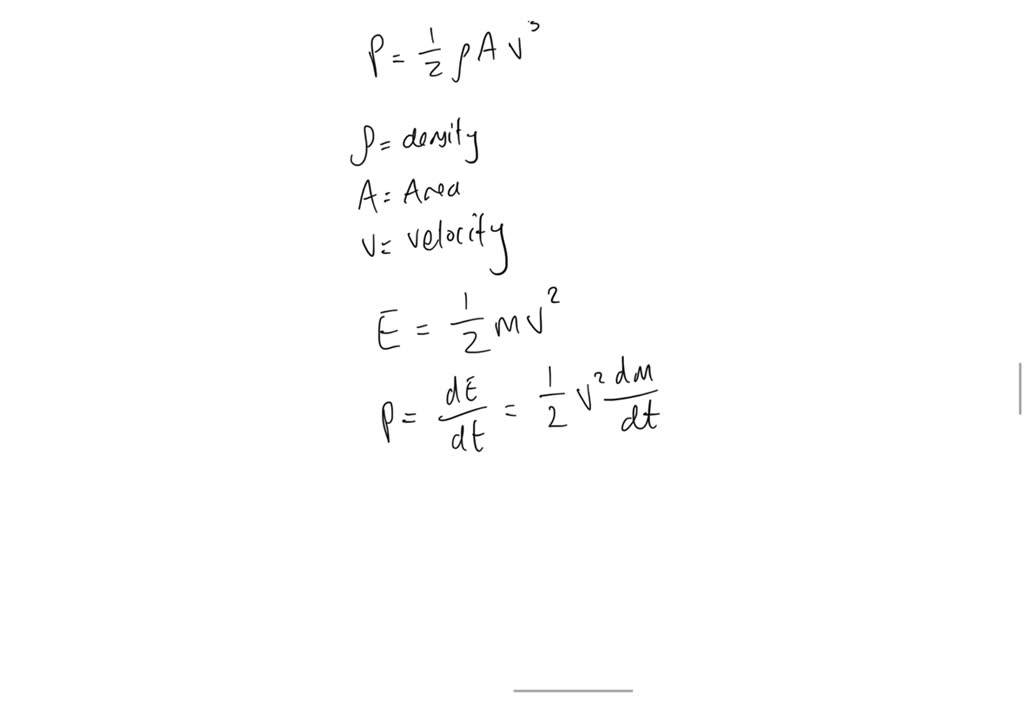 P = 1/2 ρ A v³
ρ = density
A = Area
v = velocity
E = 1/2 m v²
P = dE/dt = 1/2 v² dm/dt